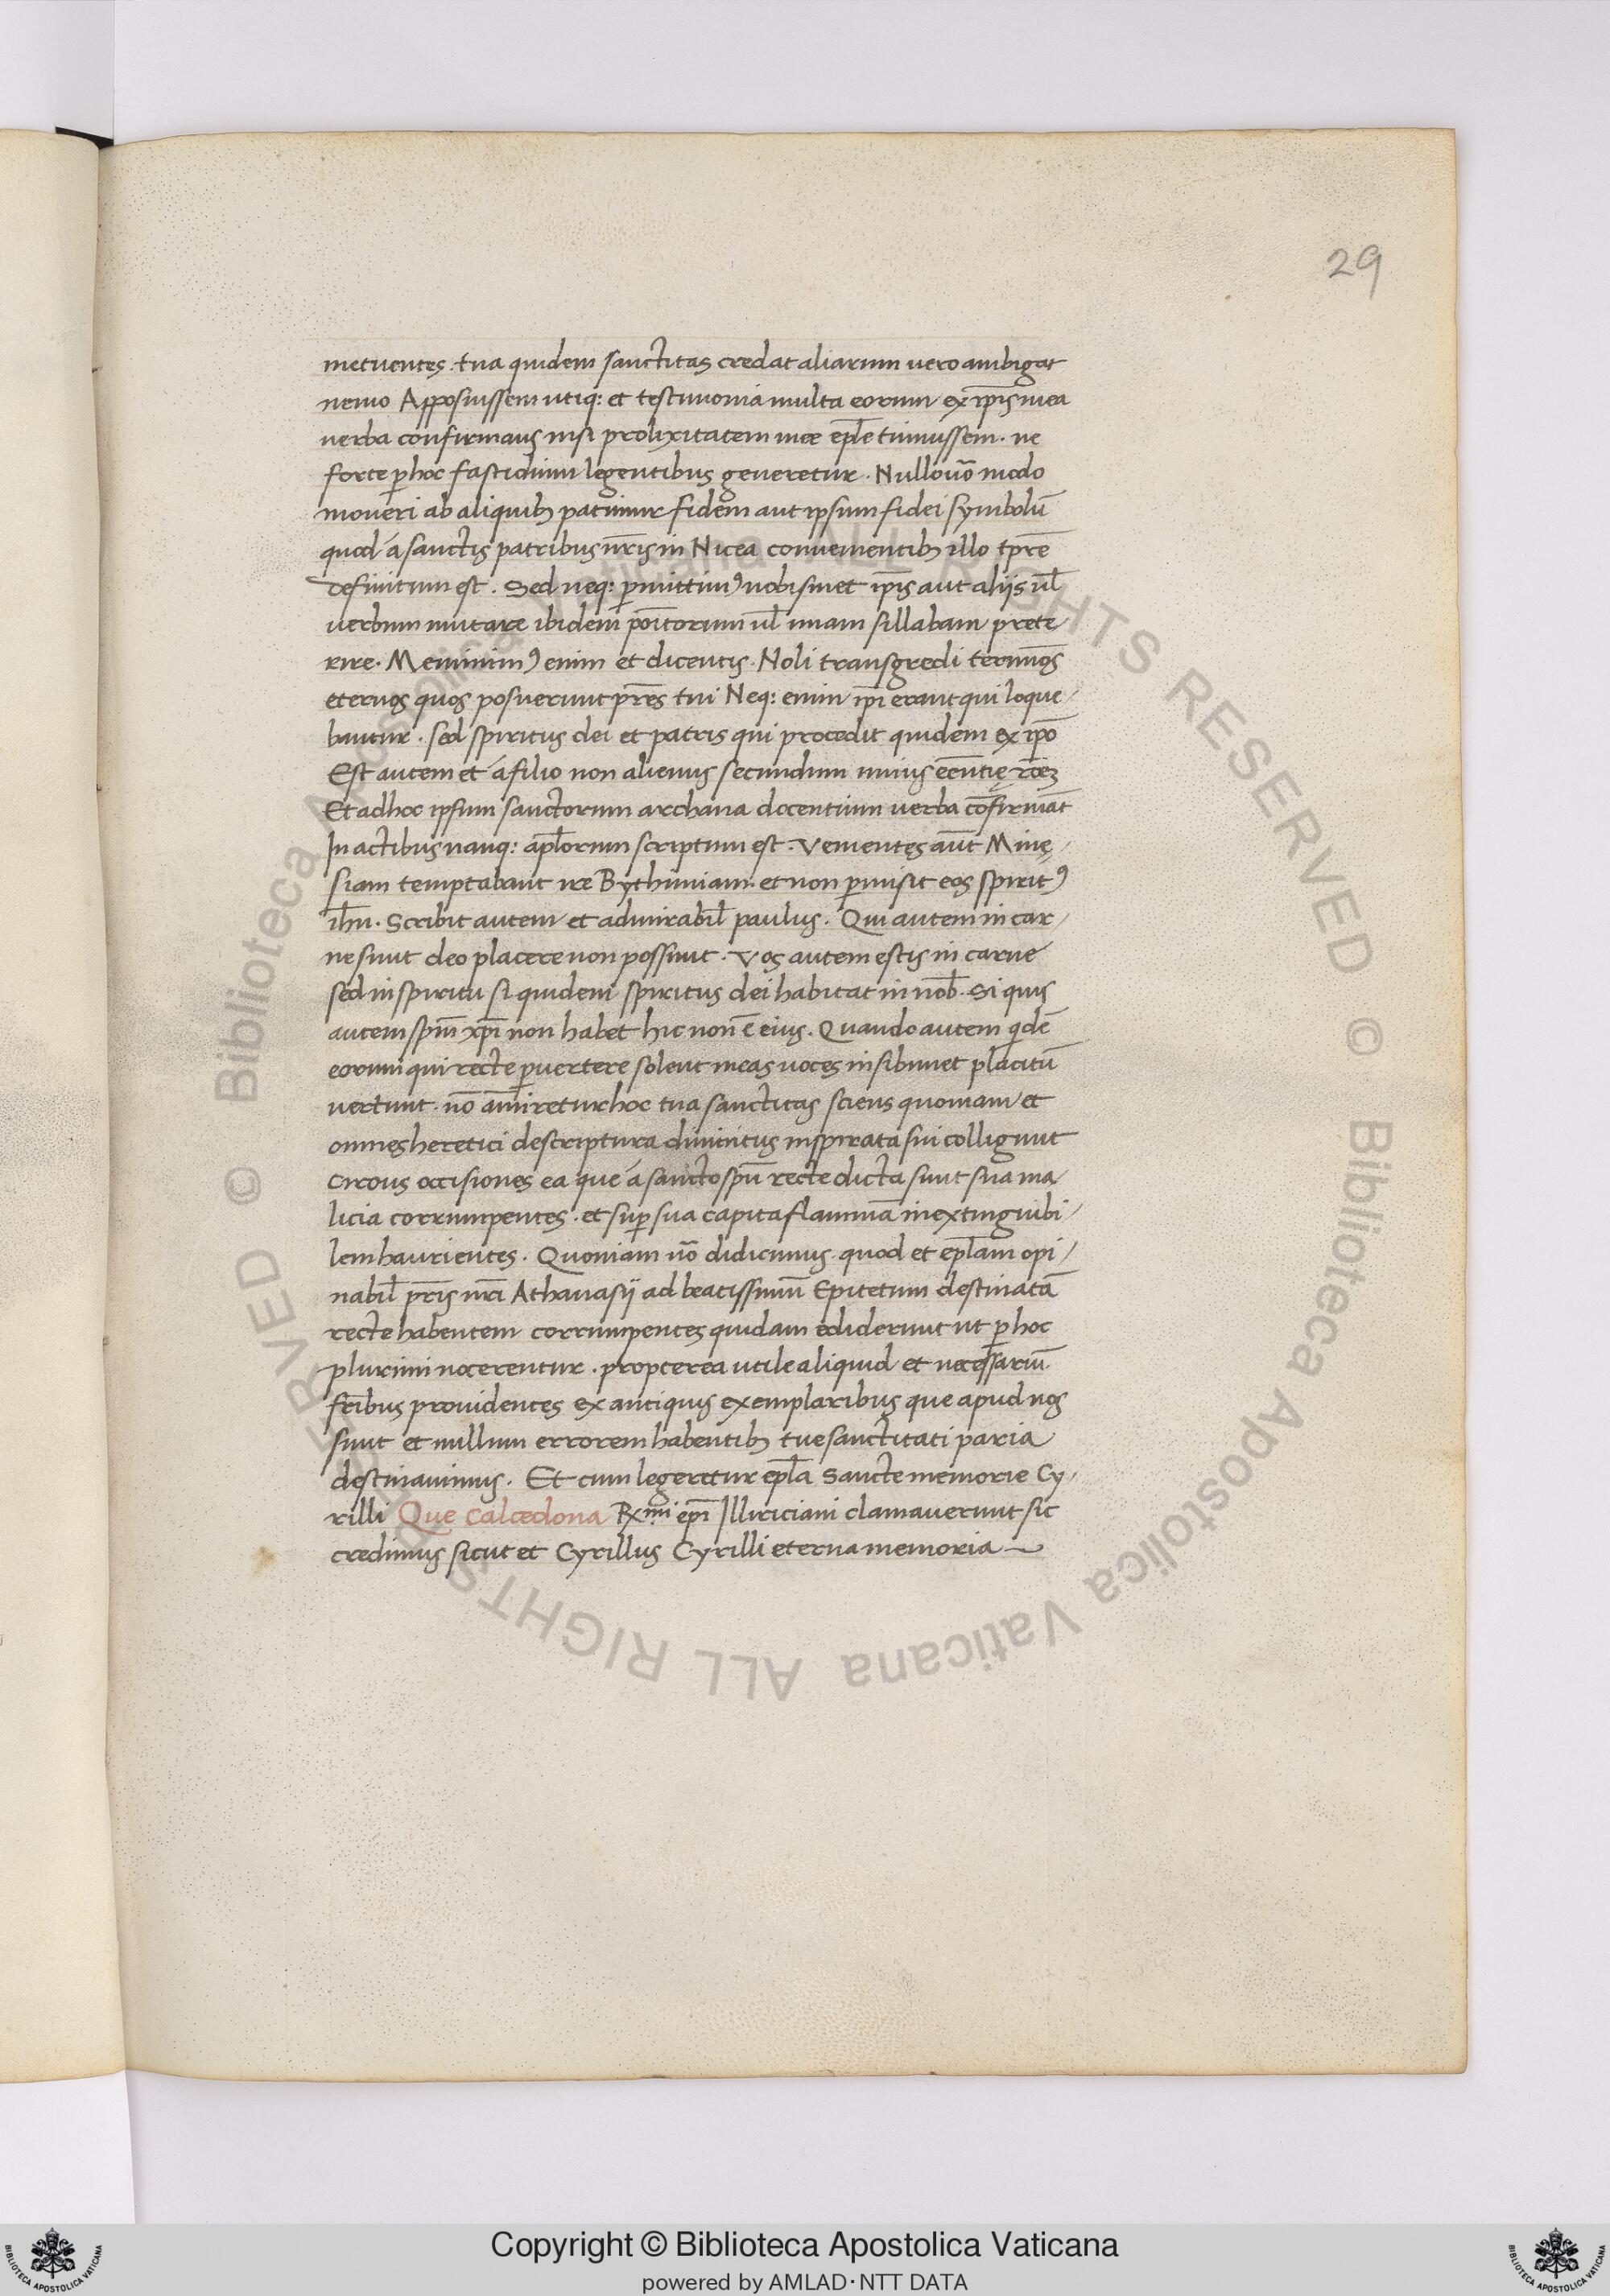 29
metuentes. tua quidem sanctitas credat aliarum uero ambigat
nemo Apposuissem utiq: et testimonia multa eorum ex ip̄is mea
uerba confirmans nisi prolixitatem mee ep̄le timuissem. ne
forte ꝑ hoc fastidium legentibus generetur. Nullo uō modo
moueri ab aliquibꝫ patimur fidem aut ipsum fidei symbolū
quod á sanctis patribus nr̄is in Nicea conuenientibꝫ illo tpr̄e
definitum est. Sed neq: ꝑmittimꝰ nobismet ip̄is aut aliis ul̄
uerbum mutare ibidem po͞itorum ul̄ unam sillabam prete
rire. Meminimꝰ enim et dicentis. Noli transgredi termio̅s
eternos quos posuerunt pr̄es tui Neq: enim ip̄i erant qui loque/
bantur. sed spiritus dei et patris qui procedit quidem ex ip̄o
Est autem et á filio non alienus secundum unius eēntię rōeꝫ
Et ad hoc ipsum sanctorum archana docentium uerba cōfirmāt
In actibus nanq: apl̄orum scriptum est. Venientes aūt Minę/
siam temptabant ire Bythiniam. et non ꝑmisit eos spiritꝰ
ih̄u. Scribit autem et admirabil̄ paulus. Qui autem in car/
ne sunt deo placere non possunt. Vos autem estis in carne
sed in spiritu si quidem spiritus dei habitat in nob̄. Si quis
autem spm̄ xp̄i non habet hic non ē eius. Quando autem qdē
eorum qui recte ꝑuertere solent meas uoces in sibimet placitū
uertunt. nō amiretur hoc tua sanctitas sciens quoniam et
omnes heretici de scriptura diuinitus inspirata sui colligunt
erroris occisiones ea que á sancto spū recte dicta sunt sua ma
licia corrumpentes. et suꝑ sua capita flammā inextinguibi/
lem haurientes. Quoniam uō didicimus quod et ep̄lam opi/
nabil̄ pr̄is nr̄i Athanasij ad beatissimū Epitetum destinatā
recte habentem corrumpentes quidam ediderunt ut ꝑ hoc
plurimi nocerentur. propterea utile aliquid et necessariū
fr̄ibus prouidentes ex antiquis exemplaribus que apud nos
sunt et nullum errorem habentibꝫ tue sanctitati paria
destinauimus. Et cum legeretur ep̄la Sancte memorie Cy/
rilli Que Calcedona Rx̄mi ep̄i Illiriciani clamauerunt sic
credimus sicut et Cyrillus Cyrilli eterna memoria
© Biblioteca Apostolica Vaticana ALL RIGHTS RESERVED © Biblioteca Apostolica Vaticana ALL RIGHTS RESERVED
Copyright © Biblioteca Apostolica Vaticana
powered by AMLAD·NTT DATA
BIBLIOTECA APOSTOLICA VATICANA
BIBLIOTECA APOSTOLICA VATICANA